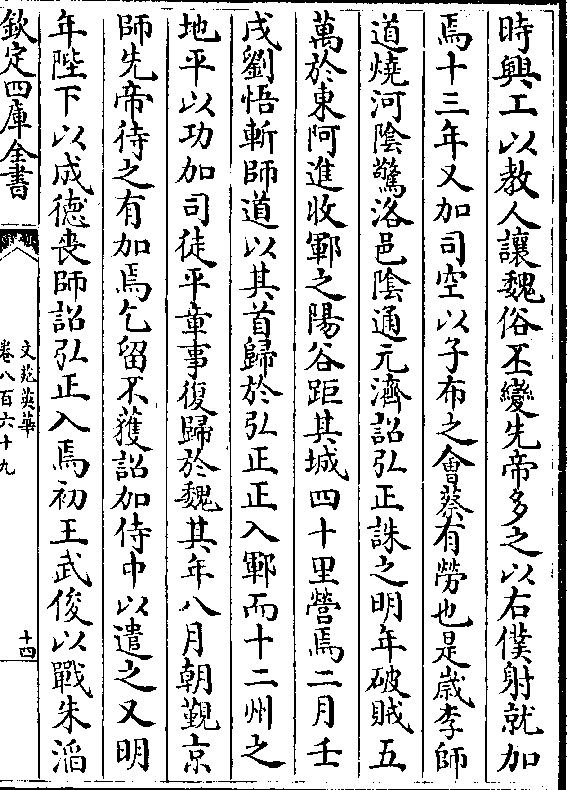 時興工以教人讓魏俗丕變先帝多之以右僕射就加
焉十三年又加司空以子布之會蔡有勞也是歲李師
道燒河陰驚洛邑陰通元濟詔弘正誅之明年破賊五
萬於東阿進收鄆之陽谷距其城四十里營焉二月壬
戌劉悟斬師道以其首歸於弘正正入鄆而十二州之
地平以功加司徒平章事復歸於魏其年八月朝覲京
師先帝待之有加焉乞留不獲詔加侍中以遣之又明
年陛下以成徳喪師詔弘正入焉初王武俊以戰朱滔
欽定四庫全書
文苑英華
卷八百六十九
十四